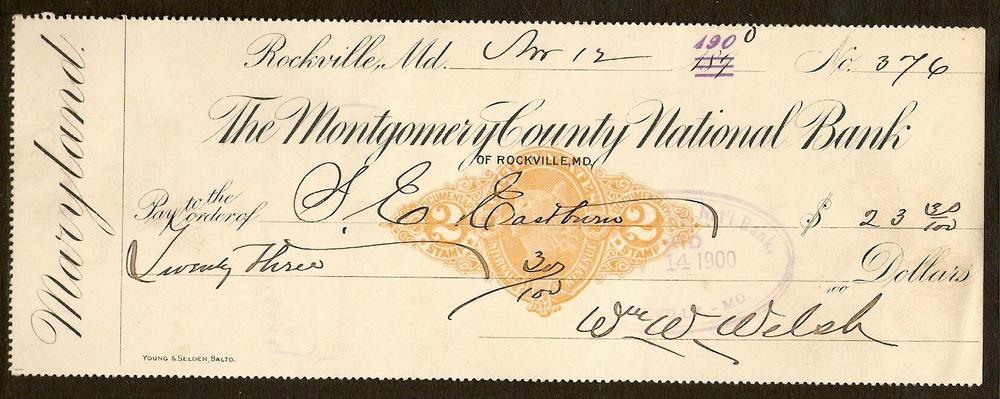 Maryland.
Rockville, Md. Nov 12 1900 187 No. 376
The Montgomery County National Bank
OF ROCKVILLE, MD.
Pay to the order of S. E. Eastburn $ 23 30/100
Twenty three 30/100 Dollars
DOCUMENTARY 2 STAMP 2 STAMP
NAT'L Bank,
14 1900
MD.
100
Wm W Welsh
YOUNG & SELDEN, BALTO.